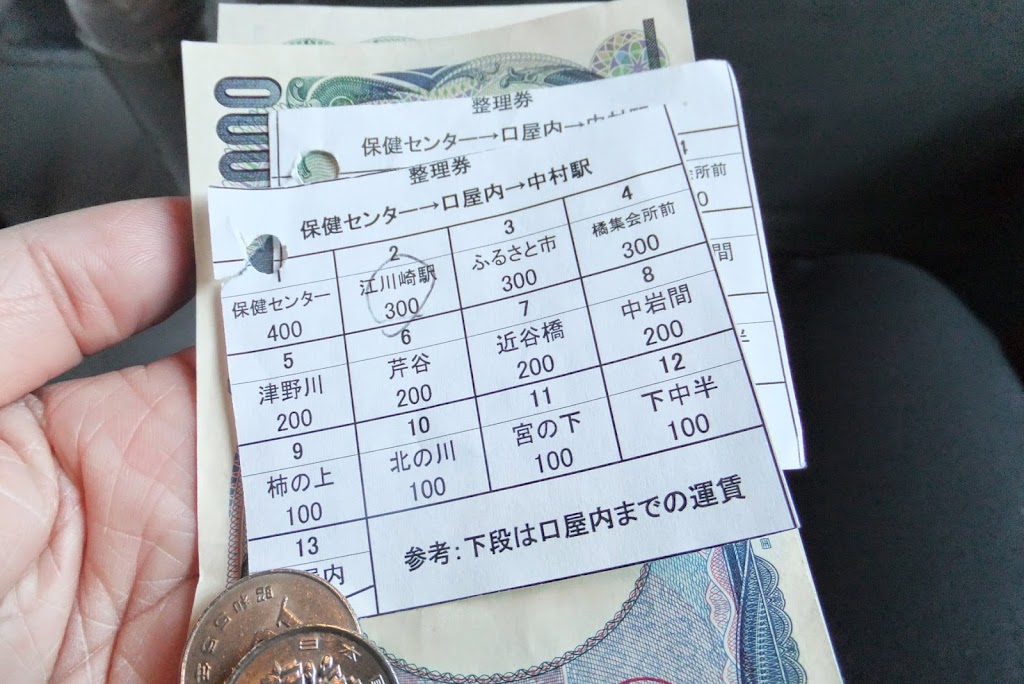 000
整理券
保健センター→口屋内→中村駅
所前
0
間
半
整理券
保健センター→口屋内→中村駅
1 2 3 4
保健センター 江川崎駅 ふるさと市 橘集会所前
400 300 300 300
5 6 7 8
津野川 芹谷 近谷橋 中岩間
200 200 200 200
9 10 11 12
柿の上 北の川 宮の下 下中半
100 100 100 100
13
屋内
参考:下段は口屋内までの運賃
昭和55年
日本